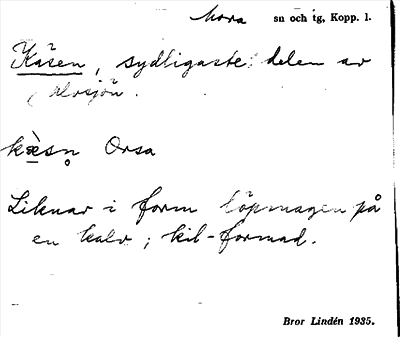 Mora sn och tg, Kopp. l.
Käsen, sydligaste delen av
Alvsjön.
kæ̀sn̥ Orsa
Liknar i form löpmagen på
en kalv; kil-formad.
Bror Lindén 1935.